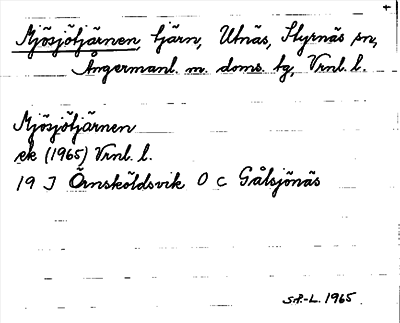 Mjösjötjärnen, tjärn, Utnäs, Styrnäs sn,
Ångermanl. m. doms. tg, Vrnl. l.
Mjösjötjärnen
ek (1965) Vrnl. l.
19 J Örnsköldsvik 0 c Gålsjönäs
S.P.-L. 1965